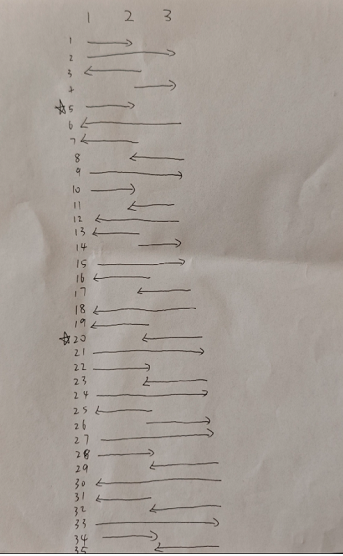 1 2 3
1
2
3
4
☆5
6
7
8
9
10
11
12
13
14
15
16
17
18
19
☆20
21
22
23
24
25
26
27
28
29
30
31
32
33
34
35